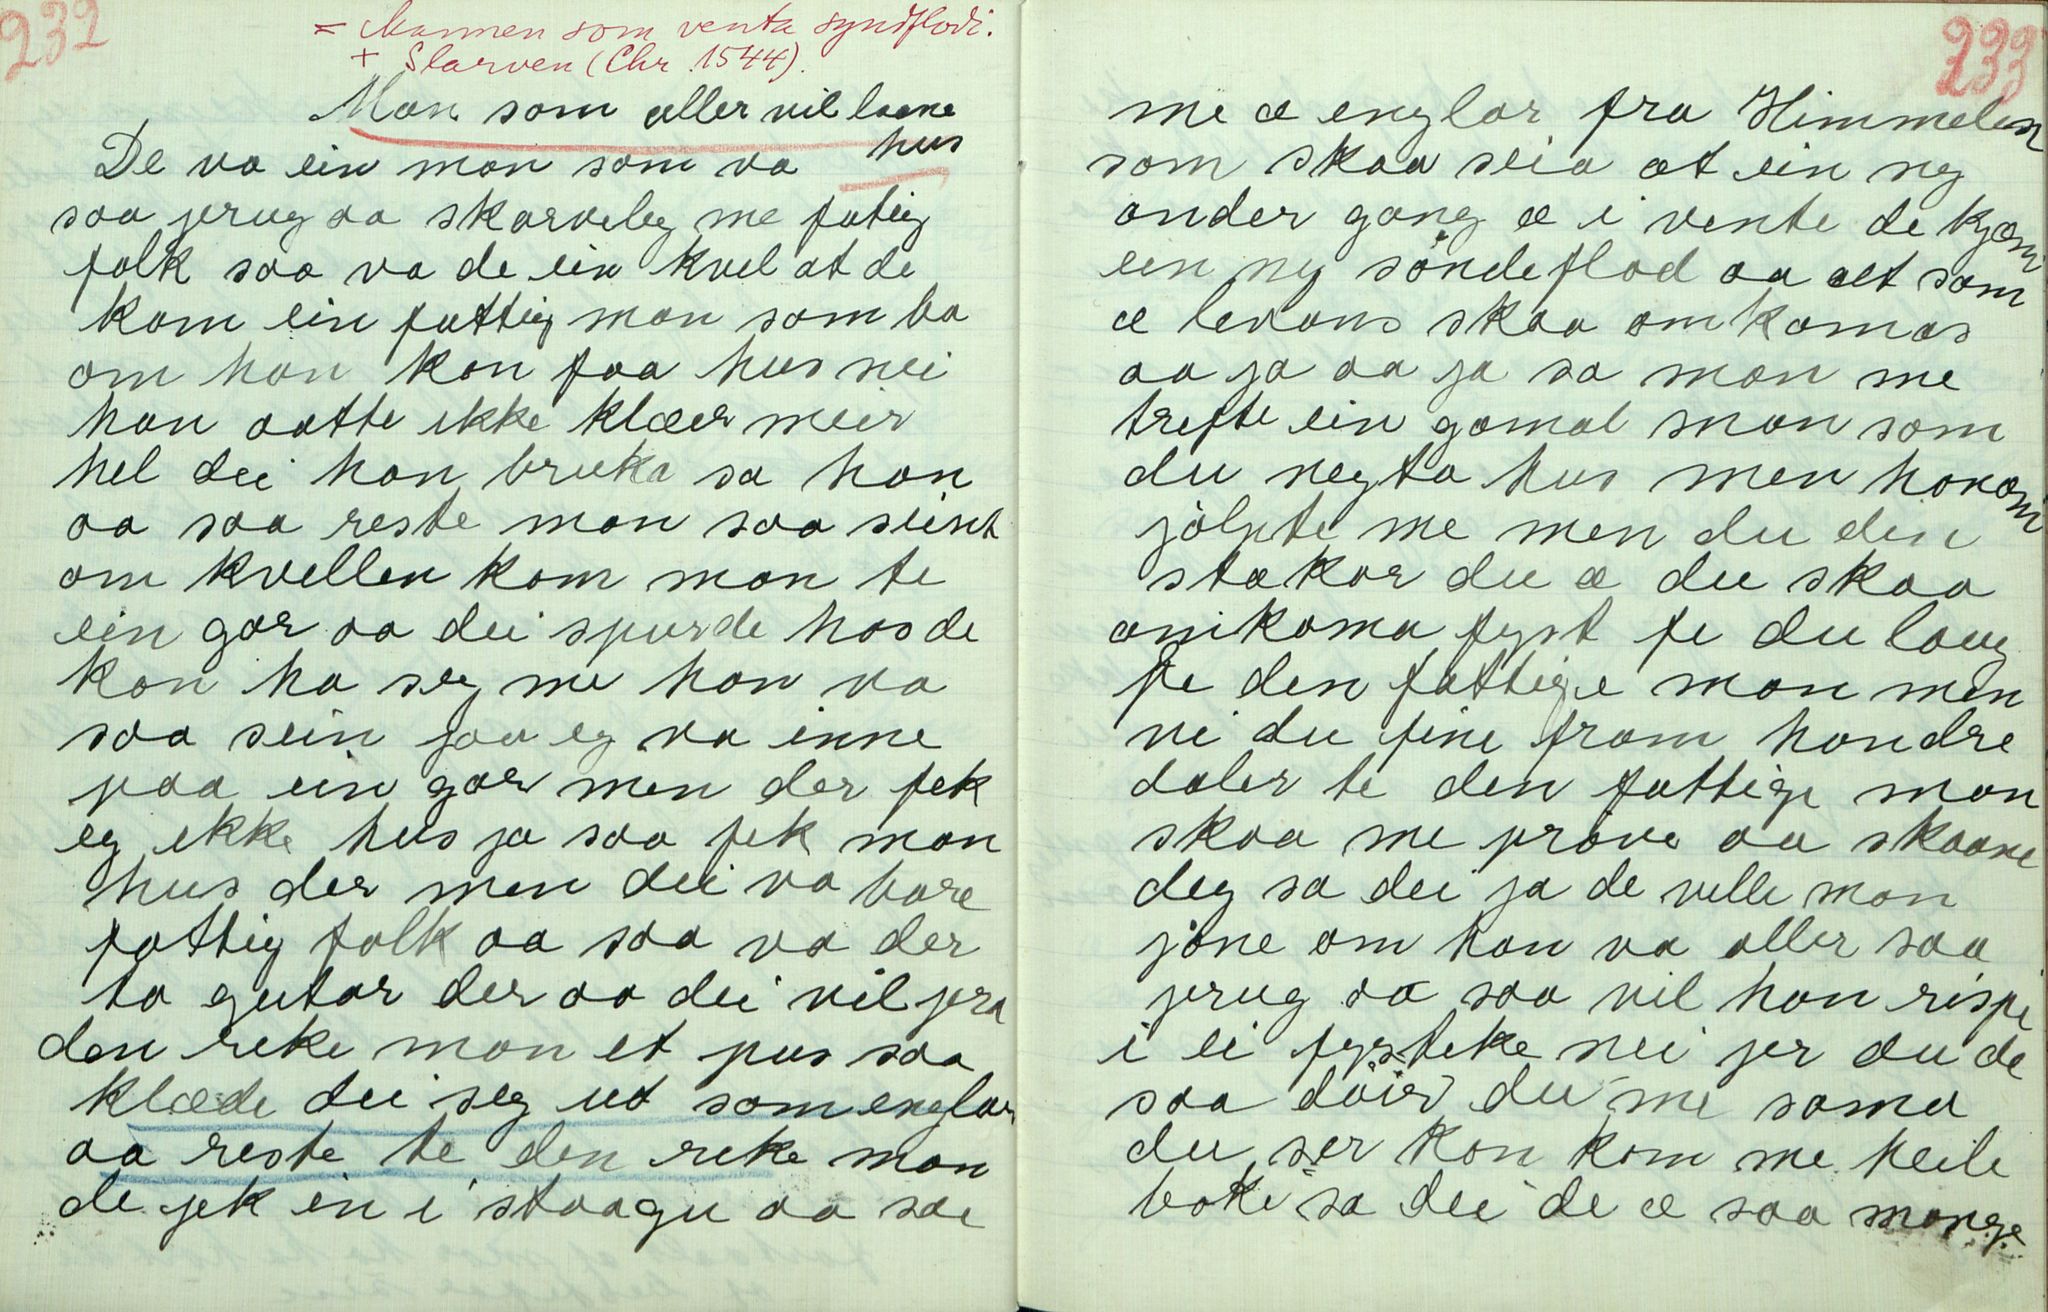 232
= Mannen som venta syndflodi.
+ Slarven (Chr. 1544).
Man som aller vil laane
hus
De va ein man som va
saa prug aa skarveleg me fatig
folk saa va de ein kvel at de
kom ein fattig man som ba
om han kan faa hus nei
han aatte ikke klæer meir
hel dei han bruka sa han
aa saa reste man saa seint
om kvellen kom man te
ein gar aa dei spurde hos de
kan ha seg me han va
saa sein jaa eg va inne
paa ein gar men der fek
eg ikke hus ja saa fek man
hus der men dei va bare
fattig folk aa saa va der
to gutar der aa dei vil jera
den reke man et pus saa
klæde dei seg ut som englar
aa reste te den reke man
de jek in i staagu aa sae
233
me æ englar fra Himmelen
som skaa seia at ein ny
ander gang æ i vente de kjæm
ein ny søndeflod aa alt som
æ levans skaa omkomas
aa ja aa ja sa man me
trefte ein gamal man som
du negta hus men honom
jølpte me men du din
stakar du æ du skaa
omkoma fyst fe du laug
fe den fattige man men
vi du fine fram hondre
daler te den fattige man
skaa me prøve aa skaane
deg sa dei ja de velle man
jøne om han va aller saa
prug aa saa vil han rispe
i ei fysteke nei jer du de
saa døier du me sama
du ser kon kom me heile
boke sa dei de æ saa mange